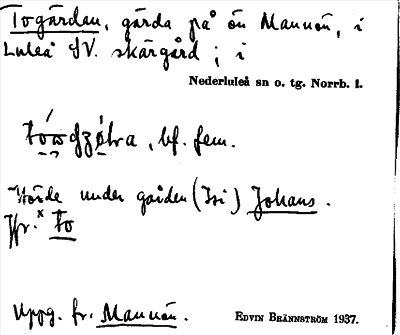 Togärdan, gärda på ön Mannön, i
Luleå SV. skärgård; i
Nederluleå sn o. tg. Norrb. l.
, bf. fem.
Hörde under gården (Isi) Johans.
Jfr. × To
Uppg. fr. Mannön.
EDVIN BRÄNNSTRÖM 1937.